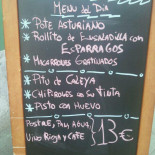 MENU DEL DIA
* POTE ASTURIANO
* Rollito de ENSALADILLA con
ESPÁRRAGOS
* MACARRONES GRATINADOS
* PITU DE CALEYA
* CHIPIRONES EN SU TINTA
* PISTO CON HUEVO
POSTRE, PAN, AGUA,
VINO RIOJA Y CAFE
13€